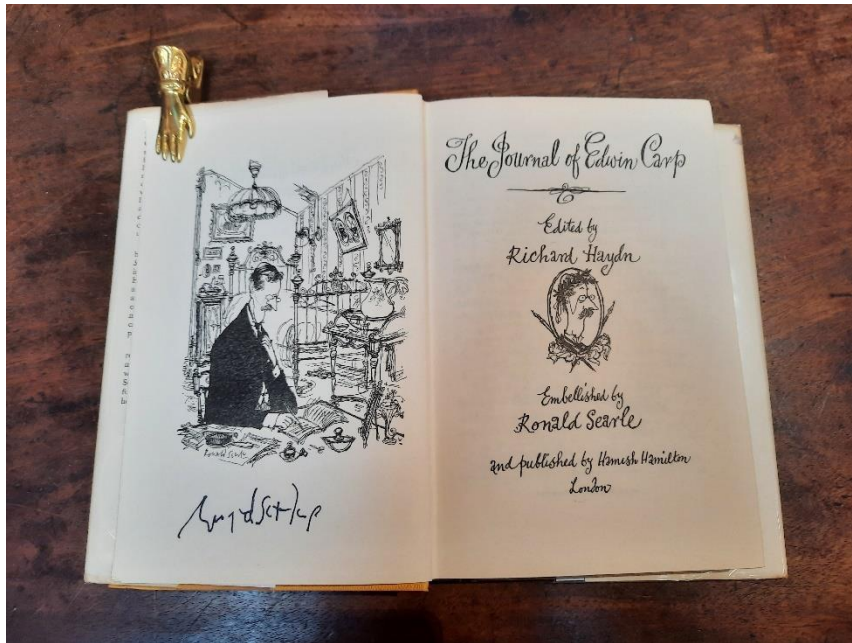 Ronald Searle
The Journal of Edwin Carp
Edited by
Richard Haydn
Embellished by
Ronald Searle
and published by Hamish Hamilton
London